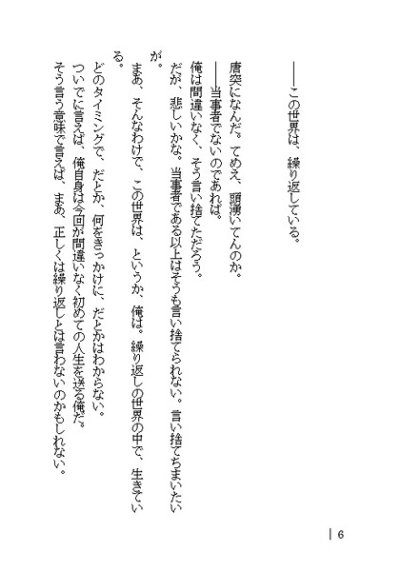 ――この世界は、繰り返している。
唐突になんだ。てめえ、頭湧いてんのか。
――当事者でないのであれば。
俺は間違いなく、そう言い捨てただろう。
だが、悲しいかな。当事者である以上はそうも言い捨てられない。言い捨てちまいたい
が。
まあ、そんなわけで、この世界は、というか、俺は。繰り返しの世界の中で、生きてい
る。
どのタイミングで、だとか、何をきっかけに、だとかはわからない。
ついでに言えば、俺自身は今回が間違いなく初めての人生を送る俺だ。
そう言う意味で言えば、まあ、正しくは繰り返しとは言わないのかもしれない。
6